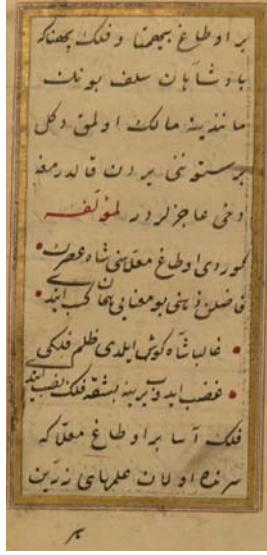 بر اوطاغ بیهمتا و فلك پهناكه
پادشاهان سلف بونك
مانندینه مالك اولمق دكل
بر ستوننی یردن قالدرمغه
دخی عاجزلردر لمؤلفه
كوردی اوطاغ معلاسنی شاه عصرك
فاضلن ذهنی بو معنایی همان كسب ایدر
غالبا شاه كوش ایلدی ظلم فلكی
غضب ایدوب یرینه بشقه فلك نصب ایدر
فلك آسا بر اوطاغ معلا كه
سرنده اولان علمهای زرین